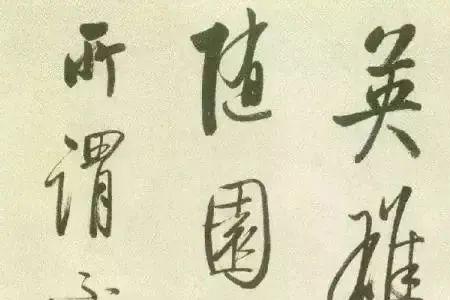 英雄
随園
所謂不